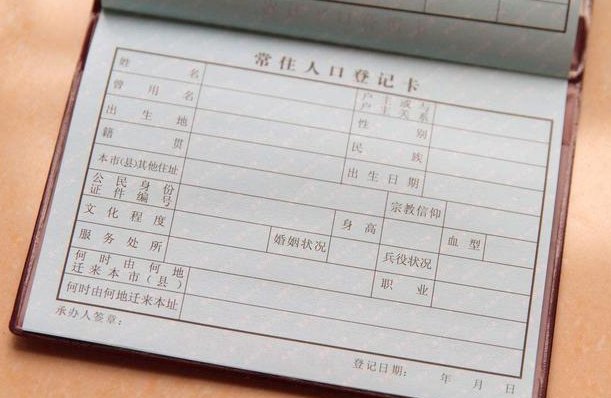 常住人口登记卡
姓名 户主或与户主关系
曾用名 性别
出生地 民族
籍贯 出生日期
本市(县)其他住址
公民身份证件编号 宗教信仰
文化程度 身高 血型
服务处所 婚姻状况 兵役状况
何时由何地迁来本市(县) 职业
何时由何地迁来本址
承办人签章:
登记日期: 年 月 日